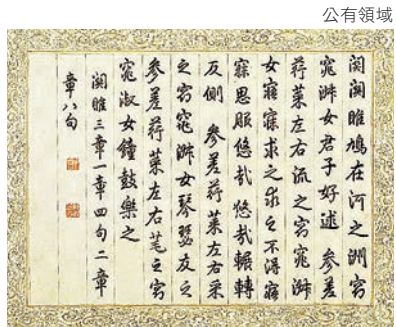 公有領域
關關雎鳩在河之洲窈
窕淑女君子好逑 參差
荇菜左右流之窈窕淑
女寤寐求之求之不得寤
寐思服悠哉悠哉輾轉
反側 參差荇菜左右采
之窈窕淑女琴瑟友之
參差荇菜左右芼之窈
窕淑女鐘鼓樂之
關雎三章一章四句二章
章八句